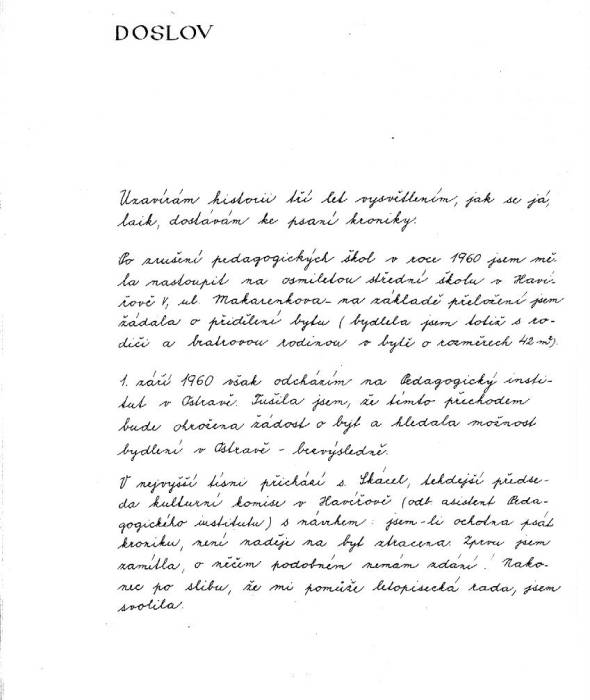 DOSLOV
Uzavírám historii tří let vysvětlením, jak se já,
laik, dostávám ke psaní kroniky.
Po zrušení pedagogických škol v roce 1960 jsem mě-
la nastoupit na osmiletou střední školu v Haví-
řově V, ul. Makarenkova - na základě přeložení jsem
žádala o přidělení bytu (bydlela jsem totiž s ro-
diči a bratrovou rodinou v bytě o rozměrech 42 m²).
1. září 1960 však odcházím na Pedagogický insti-
tut v Ostravě. Tušila jsem, že tímto přechodem
bude ohrožena žádost o byt a hledala možnost
bydlení v Ostravě - bezvýsledně.
V nejvyšší tísni přichází s. Skácel, tehdejší předse-
da kulturní komise v Havířově (odb. asistent Peda-
gogického institutu) s návrhem: jsem-li ochotna psát
kroniku, není naděje na byt ztracena. Zprvu jsem
zamítla, o něčem podobném nemám zdání! Nako-
nec po slibu, že mi pomůže letopisecká rada, jsem
svolila.